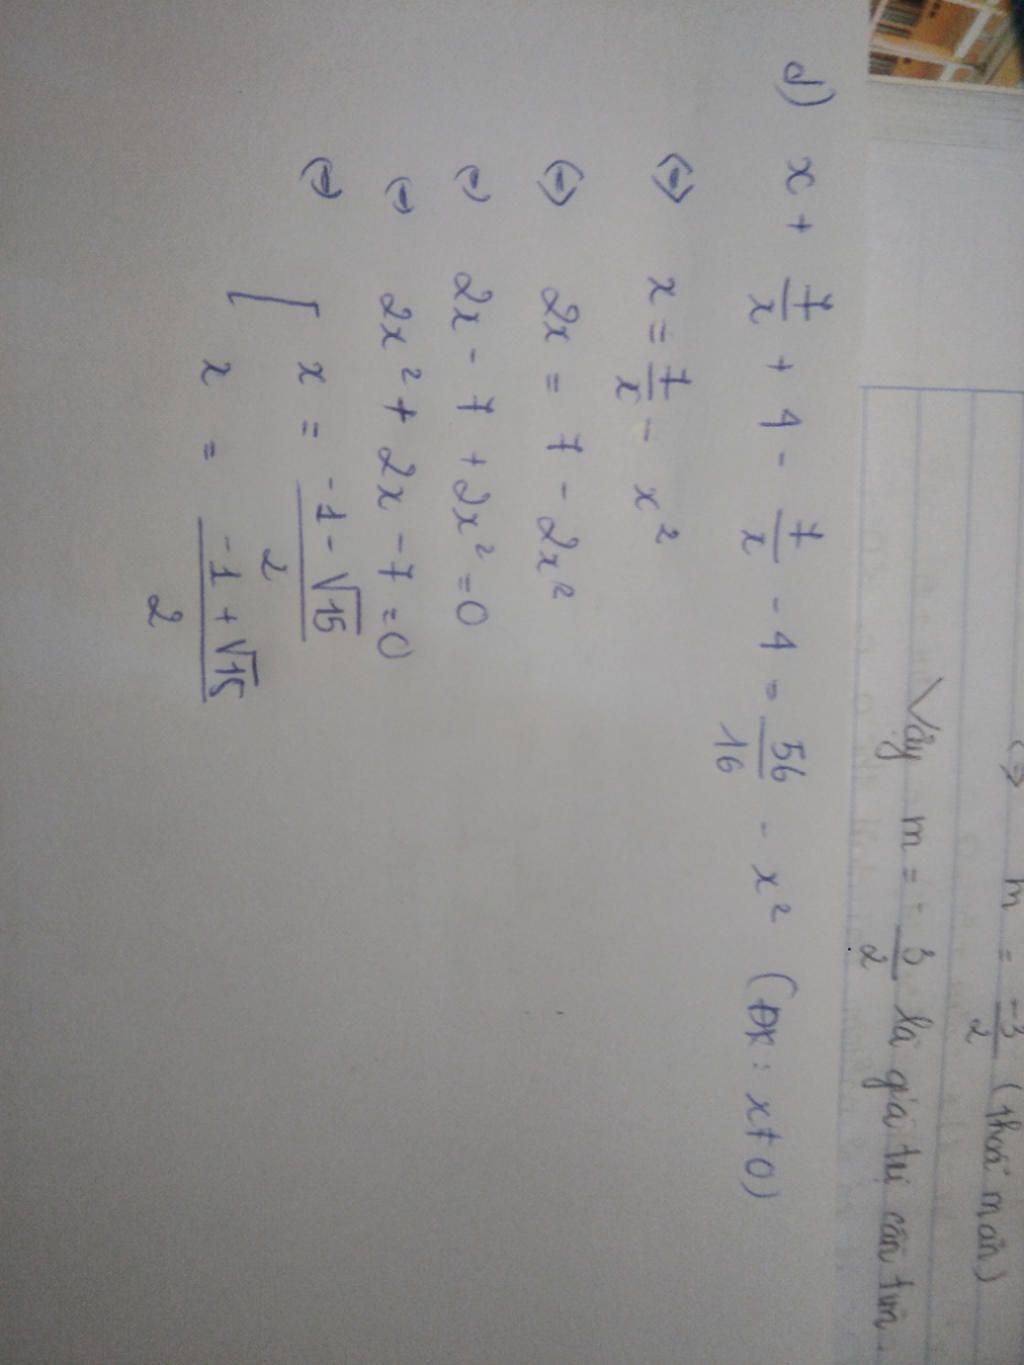 (=> m = -3/2 (thoả mãn)
Vậy m = - 3/2 là giá trị cần tìm.
d) x + 7/x + 1 - 7/x - 1 = 56/16 - x² (ĐK: x ≠ 0)
<=> x = 7/x - x²
<=> 2x = 7 - 2x²
<=> 2x - 7 + 2x² = 0
<=> 2x² + 2x - 7 = 0
<=> [ x = (-1 - √15)/2
x = (-1 + √15)/2